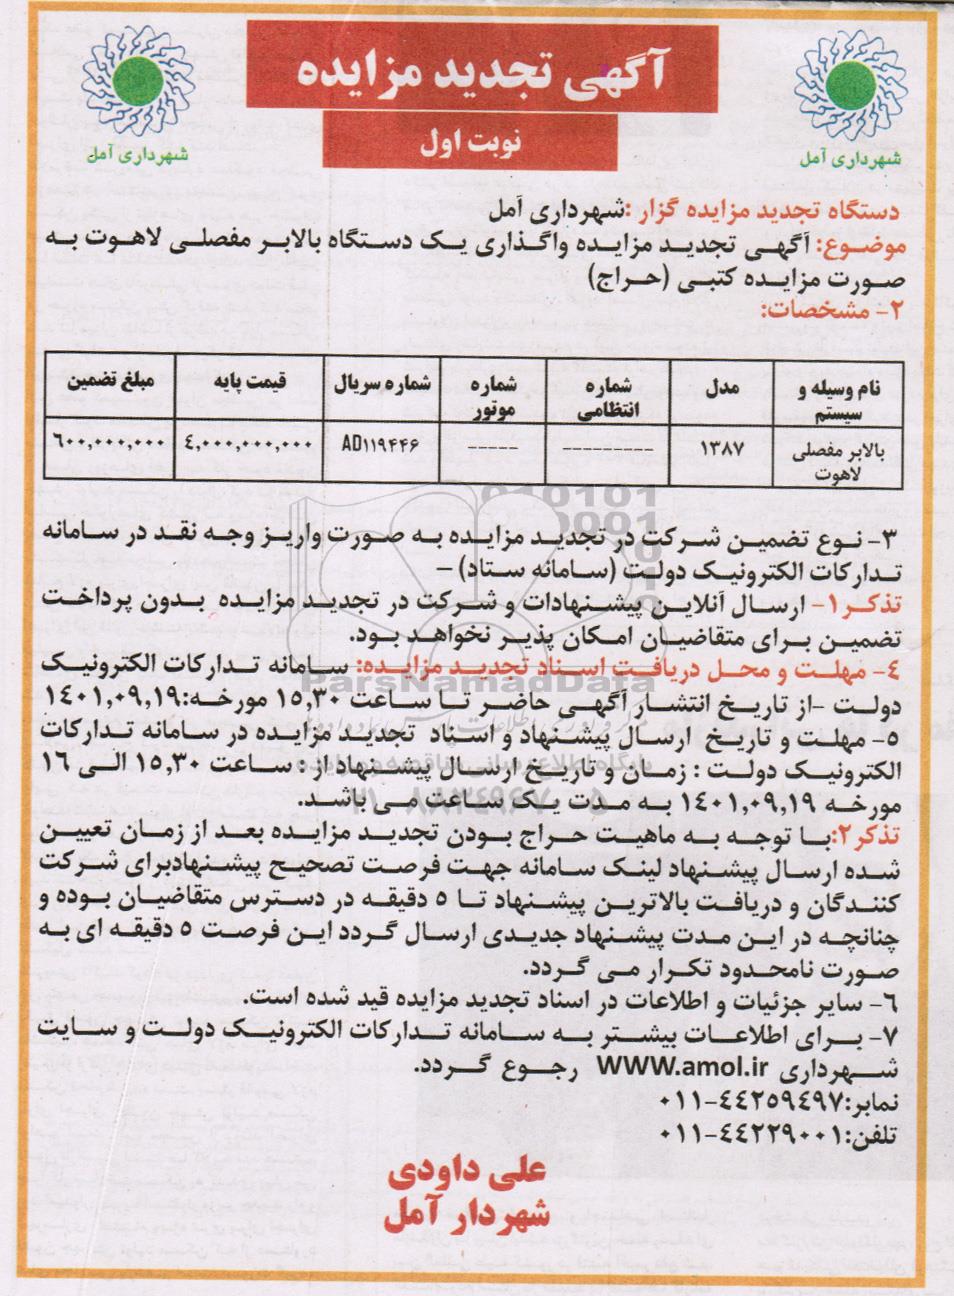 آگهی تجدید مزایده
نوبت اول
شهرداری آمل
شهرداری آمل
دستگاه تجدید مزایده گزار :شهرداری آمل
موضوع: آگهی تجدید مزایده واگذاری یک دستگاه بالابر مفصلی لاهوت به
صورت مزایده کتبی (حراج)
۲- مشخصات:
نام وسیله و سیستم | مدل | شماره انتظامی | شماره موتور | شماره سریال | قیمت پایه | مبلغ تضمین
بالابر مفصلی لاهوت | ۱۳۸۷ | --------- | ----- | AD۱۱۹۴۴۶ | ۴,۰۰۰,۰۰۰,۰۰۰ | ۶۰۰,۰۰۰,۰۰۰
۳- نوع تضمین شرکت در تجدید مزایده به صورت واریز وجه نقد در سامانه
تدارکات الکترونیک دولت (سامانه ستاد) –
تذکر۱- ارسال آنلاین پیشنهادات و شرکت در تجدید مزایده بدون پرداخت
تضمین برای متقاضیان امکان پذیر نخواهد بود.
۴- مهلت و محل دریافت اسناد تجدید مزایده: سامانه تدارکات الکترونیک
دولت –از تاریخ انتشار آگهی حاضر تا ساعت ۱۵,۳۰ مورخه:۱۴۰۱,۰۹,۱۹
۵- مهلت و تاریخ ارسال پیشنهاد و اسناد تجدید مزایده در سامانه تدارکات
الکترونیک دولت : زمان و تاریخ ارسال پیشنهاد از : ساعت ۱۵,۳۰ الی ۱۶
مورخه ۱۴۰۱,۰۹,۱۹ به مدت یک ساعت می باشد.
تذکر۲:با توجه به ماهیت حراج بودن تجدید مزایده بعد از زمان تعیین
شده ارسال پیشنهاد لینک سامانه جهت فرصت تصحیح پیشنهادبرای شرکت
کنندگان و دریافت بالاترین پیشنهاد تا ۵ دقیقه در دسترس متقاضیان بوده و
چنانچه در این مدت پیشنهاد جدیدی ارسال گردد این فرصت ۵ دقیقه ای به
صورت نامحدود تکرار می گردد.
۶- سایر جزئیات و اطلاعات در اسناد تجدید مزایده قید شده است.
۷- برای اطلاعات بیشتر به سامانه تدارکات الکترونیک دولت و سایت
شهرداری WWW.amol.ir رجوع گردد.
نمابر:۴۴۲۵۹۴۹۷-۰۱۱
تلفن:۴۴۲۲۹۰۰۱-۰۱۱
علی داودی
شهردار آمل
ParsNamadData